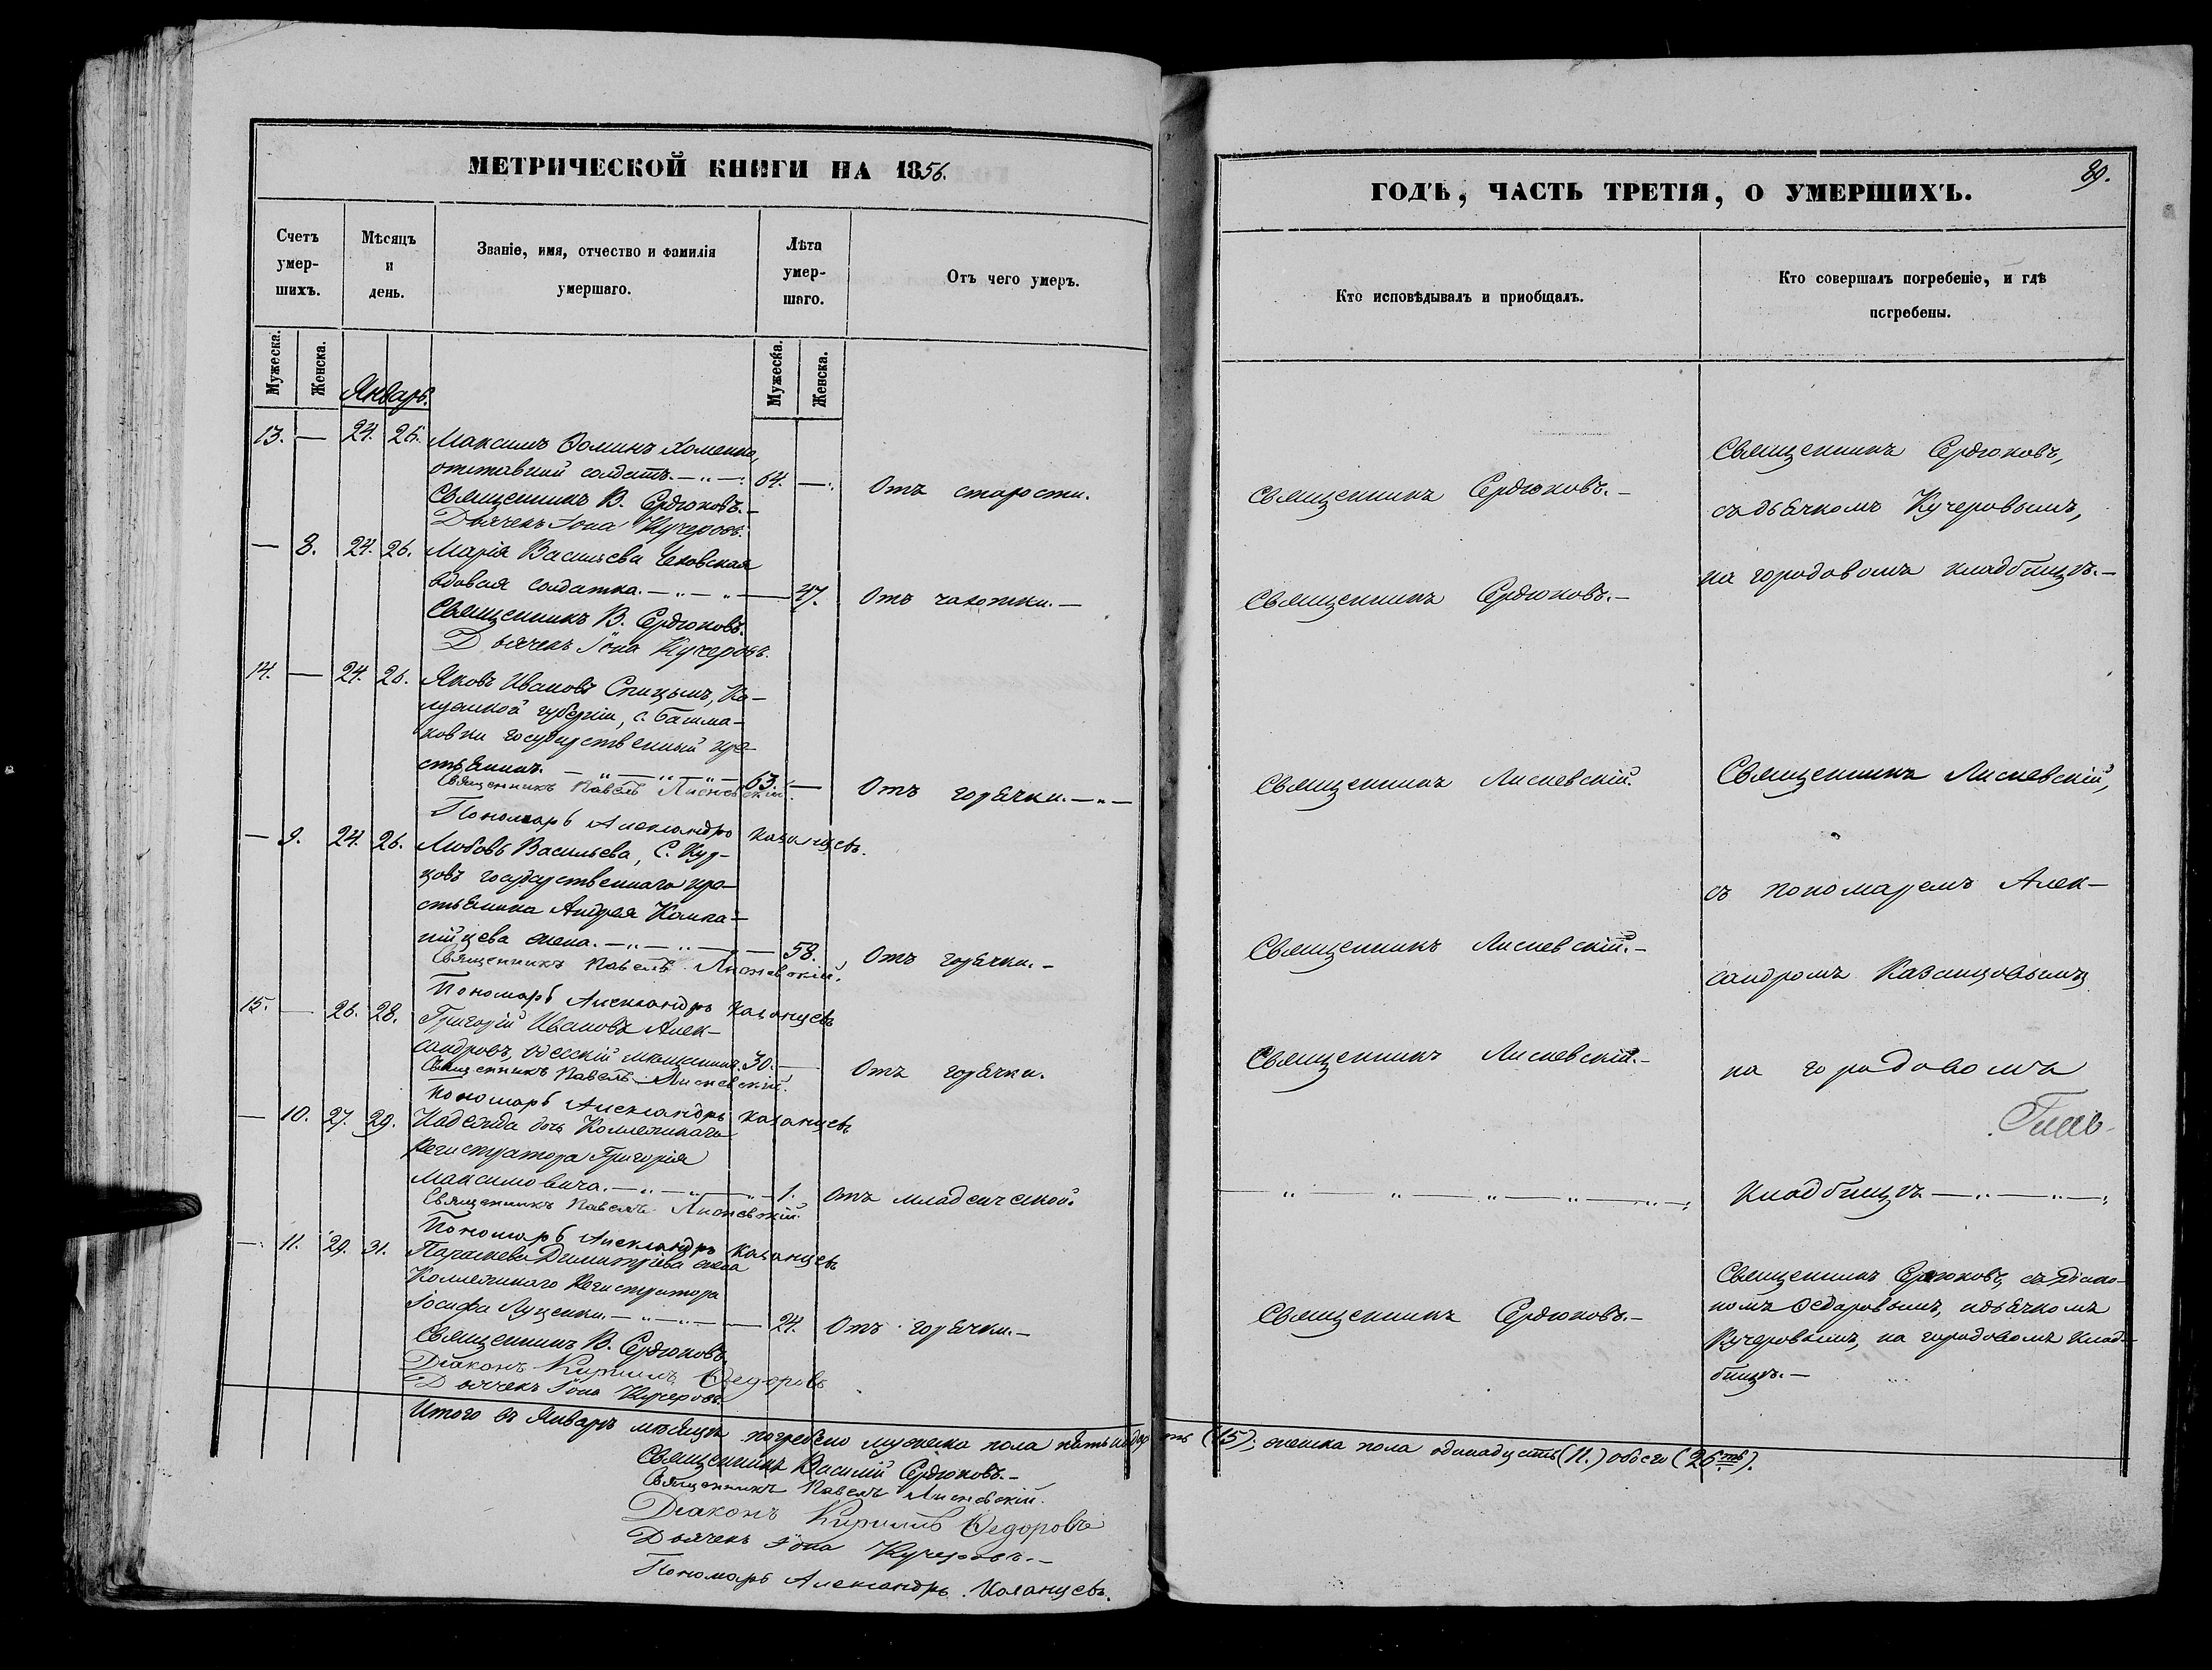 МЕТРИЧЕСКОЙ КНИГИ НА 1856.
Счетъ умер-шихъ.
Мѣсяцъ и день.
Званіе, имя, отчество и фамилія умершаго.
Лѣта умер-шаго.
Отъ чего умеръ.
Мужеска.
Женска.
Январь.
Мужеска.
Женска.
13. — 24. 26. Максимъ Ѳоминъ Хоменко,
отставной солдатъ. 64. — Отъ старости.
Священникъ В. Сердюковъ.
Дьячекъ Іона Кучеровъ.
— 8. 24. 26. Марія Васильева
вдовая солдатка. — 47. Отъ чахотки. —
Священникъ В. Сердюковъ.
Дьячекъ Іона Кучеровъ.
14. — 24. 26. Яковъ Ивановъ Спицынъ, Ка-
лужской губерніи, с. Башма-
ковки государственный кре-
стьянинъ. — 63. — Отъ горячки. —
Священникъ Павелъ Лисневскій.
Пономарь Александръ Казанцевъ.
— 9. 24. 26. Любовь Васильева, С.
государственнаго кре-
стьянина Андрея Компа-
нійцева жена. — 58. Отъ горячки. —
Священникъ Павелъ Лисневскій.
Пономарь Александръ Казанцевъ
15. — 26. 28. Григорій Ивановъ Алек-
сандровъ, Одесскій мѣщанинъ. 30. — Отъ горячки.
Священникъ Павелъ Лисневскій.
Пономарь Александръ Казанцевъ
— 10. 27. 29. Надежда дочь Коллежскаго
Регистратора Григорія
Максимовича. — 1. Отъ младенческой.
Священникъ Павелъ Лисневскій.
Пономарь Александръ Казанцевъ
— 11. 29. 31. Параскева Димитріева жена
Коллежскаго Регистратора
Іосифа Луценки. — 24. Отъ горячки. —
Священникъ В. Сердюковъ.
Діаконъ Кириллъ Ѳедоровъ
Дьячекъ Іона Кучеровъ.
Итого въ Январѣ мѣсяцѣ погребено мужеска пола пятьнадцать (15); женска пола одинадцать (11.) обоего (26ть).
Священникъ Василій Сердюковъ. —
Священникъ Павелъ Лисневскій.
Діаконъ Кириллъ Ѳедоровъ
Дьячекъ Іона Кучеровъ. —
Пономарь Александръ Казанцевъ.
89.
ГОДЪ, ЧАСТЬ ТРЕТІЯ, О УМЕРШИХЪ.
Кто исповѣдывалъ и пріобщалъ.
Кто совершалъ погребеніе, и гдѣ погребены.
Священникъ Сердюковъ. —
Священникъ Сердюковъ. —
Священникъ Лисневскій.
Священникъ Лисневскій. —
Священникъ Лисневскій. —
Священникъ Сердюковъ. —
Священникъ Сердюковъ,
съ дьячкомъ Кучеровымъ,
на городовомъ кладбищѣ. —
Священникъ Лисневскій,
съ пономаремъ Алек-
сандромъ Казанцовымъ
на городовомъ
кладбищѣ —
Священникъ Сердюковъ, съ діако-
номъ Ѳедоровымъ, и дьячкомъ
Кучеровымъ, на городовомъ клад-
бищѣ. —